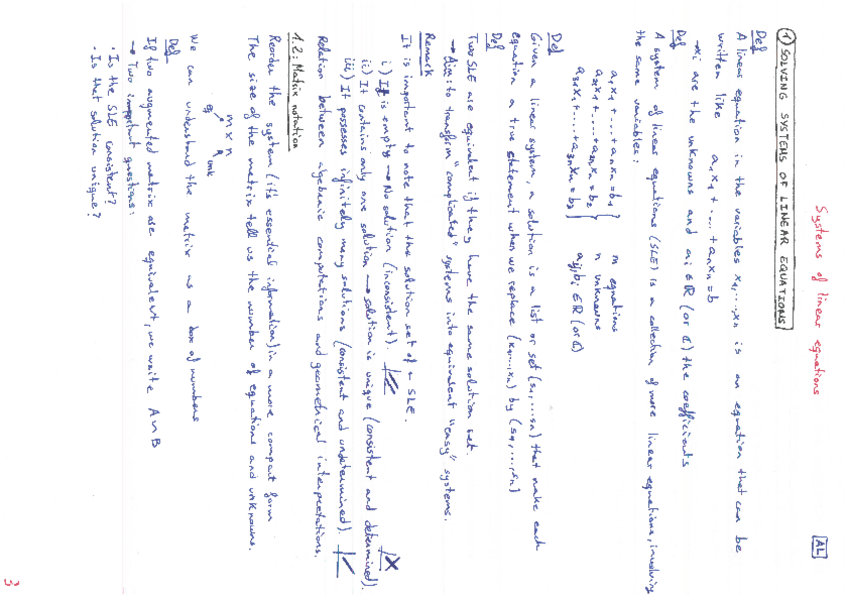 Systems of linear equations
AL
1 SOLVING SYSTEMS OF LINEAR EQUATIONS
Def
A linear equation in the variables x1,...,xn is an equation that can be
written like a1x1 + .... + anxn = b
→ xi are the unknowns and ai ∈ R (or C) the coefficients
Def
A system of linear equations (SLE) is a collection of more linear equations, involving
the same variables:
a1x1 + .... + anxn = b1
a21x1 + .... + a2nxn = b2
a31x1 + .... + a3nxn = b3
m equations
n unknowns
aij, bi ∈ R (or C)
Def
Given a linear system, a solution is a list or set (s1,...,sn) that make each
equation a true statement when we replace (x1,...,xn) by (s1,...,sn)
Def
Two SLE are equivalent if they have the same solution set.
→ Aim: to transform "complicated" systems into equivalent "easy" systems.
Remark
It is important to note that the solution set of a SLE.
i) If is empty → No solution (inconsistent).
ii) It contains only one solution → solution is unique (consistent and determined).
iii) It possesses infinitely many solutions (consistent and undetermined).
Relation between algebraic computations and geometrical interpretations.
1.2: Matrix notation
Reorder the system (it's essential information) in a more compact form
The size of the matrix tell us the number of equations and unknowns.
m x n
eq
unk
We can understand the matrix as a box of numbers
Def
If two augmented matrix are equivalent, we write A ~ B
→ Two important questions:
· Is the SLE consistent?
· Is that solution unique?
3